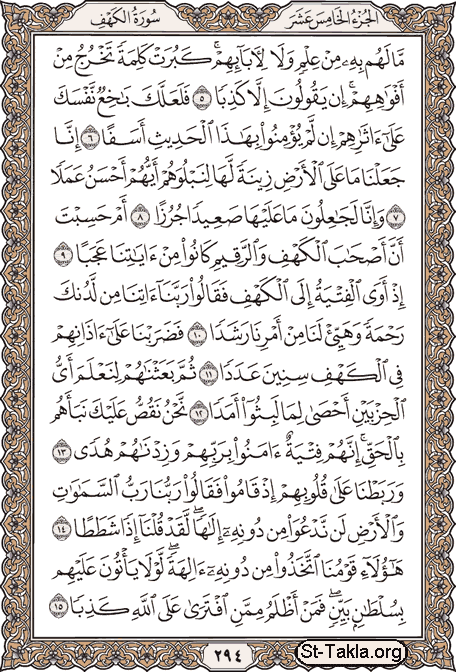 سُورَةُ الكَهْفِ
الجُزْءُ الخَامِسَ عَشَرَ
مَّا لَهُم بِهِۦ مِنْ عِلْمٍ وَلَا لِأٓبَآئِهِمْۚ كَبُرَتْ كَلِمَةً تَخْرُجُ مِنْ
أَفْوَٰهِهِمْۚ إِن يَقُولُونَ إِلَّا كَذِبًا ٥ فَلَعَلَّكَ بَٰخِعٌ نَّفْسَكَ
عَلَىٰٓ ءَاثَٰرِهِمْ إِن لَّمْ يُؤْمِنُوا۟ بِهَٰذَا ٱلْحَدِيثِ أَسَفًا ٦ إِنَّا
جَعَلْنَا مَا عَلَى ٱلْأَرْضِ زِينَةً لَّهَا لِنَبْلُوَهُمْ أَيُّهُمْ أَحْسَنُ عَمَلًا
٧ وَإِنَّا لَجَٰعِلُونَ مَا عَلَيْهَا صَعِيدًا جُرُزًا ٨ أَمْ حَسِبْتَ
أَنَّ أَصْحَٰبَ ٱلْكَهْفِ وَٱلرَّقِيمِ كَانُوا۟ مِنْ ءَايَٰتِنَا عَجَبًا ٩
إِذْ أَوَى ٱلْفِتْيَةُ إِلَى ٱلْكَهْفِ فَقَالُوا۟ رَبَّنَآ ءَاتِنَا مِن لَّدُنكَ
رَحْمَةً وَهَيِّئْ لَنَا مِنْ أَمْرِنَا رَشَدًا ١٠ فَضَرَبْنَا عَلَىٰٓ ءَاذَانِهِمْ
فِى ٱلْكَهْفِ سِنِينَ عَدَدًا ١١ ثُمَّ بَعَثْنَٰهُمْ لِنَعْلَمَ أَىُّ
ٱلْحِزْبَيْنِ أَحْصَىٰ لِمَا لَبِثُوٓا۟ أَمَدًا ١٢ نَّحْنُ نَقُصُّ عَلَيْكَ نَبَأَهُم
بِٱلْحَقِّۚ إِنَّهُمْ فِتْيَةٌ ءَامَنُوا۟ بِرَبِّهِمْ وَزِدْنَٰهُمْ هُدًى ١٣
وَرَبَطْنَا عَلَىٰ قُلُوبِهِمْ إِذْ قَامُوا۟ فَقَالُوا۟ رَبُّنَا رَبُّ ٱلسَّمَٰوَٰتِ
وَٱلْأَرْضِ لَن نَّدْعُوَا۟ مِن دُونِهِۦٓ إِلَٰهًاۖ لَّقَدْ قُلْنَآ إِذًا شَطَطًا ١٤
هَٰٓؤُلَآءِ قَوْمُنَا ٱتَّخَذُوا۟ مِن دُونِهِۦٓ ءَالِهَةًۖ لَّوْلَا يَأْتُونَ عَلَيْهِم
بِسُلْطَٰنٍۭ بَيِّنٍۖ فَمَنْ أَظْلَمُ مِمَّنِ ٱفْتَرَىٰ عَلَى ٱللَّهِ كَذِبًا ١٥
٢٩٤
St-Takla.org